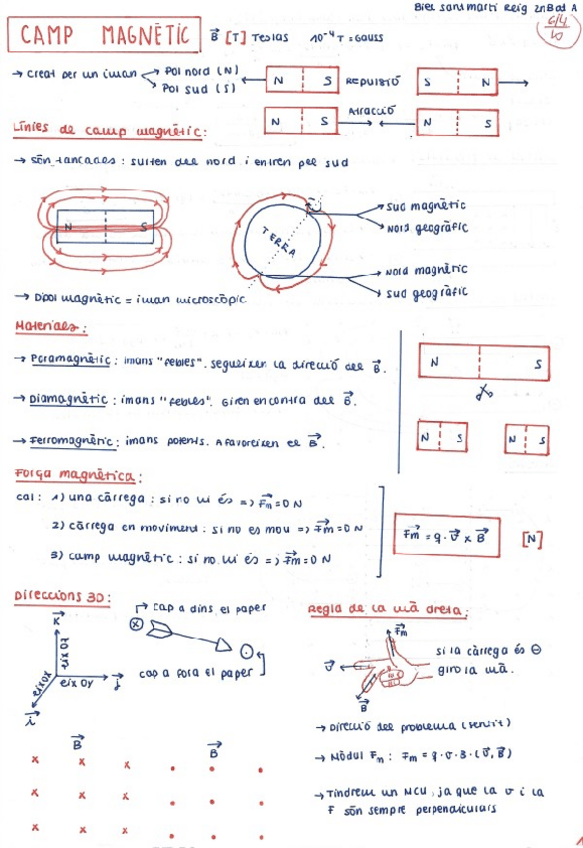 Biel Sanmartí Reig 2nBat A
CAMP MAGNÈTIC B [T] Teslas 10⁻⁴ T = Gauss
6/4
10
→ Creat per un iman Pol nord (N)
Pol sud (S)
N S REPULSIÓ S N
N S Atracció N S
Línies de camp magnètic:
→ Són tancades: surten del nord i entren pel sud
N S
TERRA
Sud magnètic
Nord geogràfic
Nord magnètic
Sud geogràfic
→ Dipol magnètic = iman microscòpic
Materials:
→ Paramagnètic: imans "febles". segueixen la direcció del B.
→ Diamagnètic: imans "febles". Giren en contra del B.
→ Ferromagnètic: imans potents. Afavoreixen el B.
N S
N S N S
Força magnètica:
cal: 1) una càrrega: si no hi és => Fm = 0 N
2) càrrega en moviment: si no es mou => Fm = 0 N
3) camp magnètic: si no hi és => Fm = 0 N
Fm = q · v x B [N]
Direccions 3D:
cap a dins el paper
cap a fora el paper
k
eix Oz
eix Ox
eix Oy
j
i
Regla de la mà dreta:
Fm
v
B
si la càrrega és ⊖
giro la mà.
→ Direcció del problema (sentit)
→ Mòdul Fm: Fm = q · v · B · (v, B)
→ Tindrem un MCU, ja que la v i la
F són sempre perpendiculars
B B
x x x • • •
x x x • • •
x x x • • •